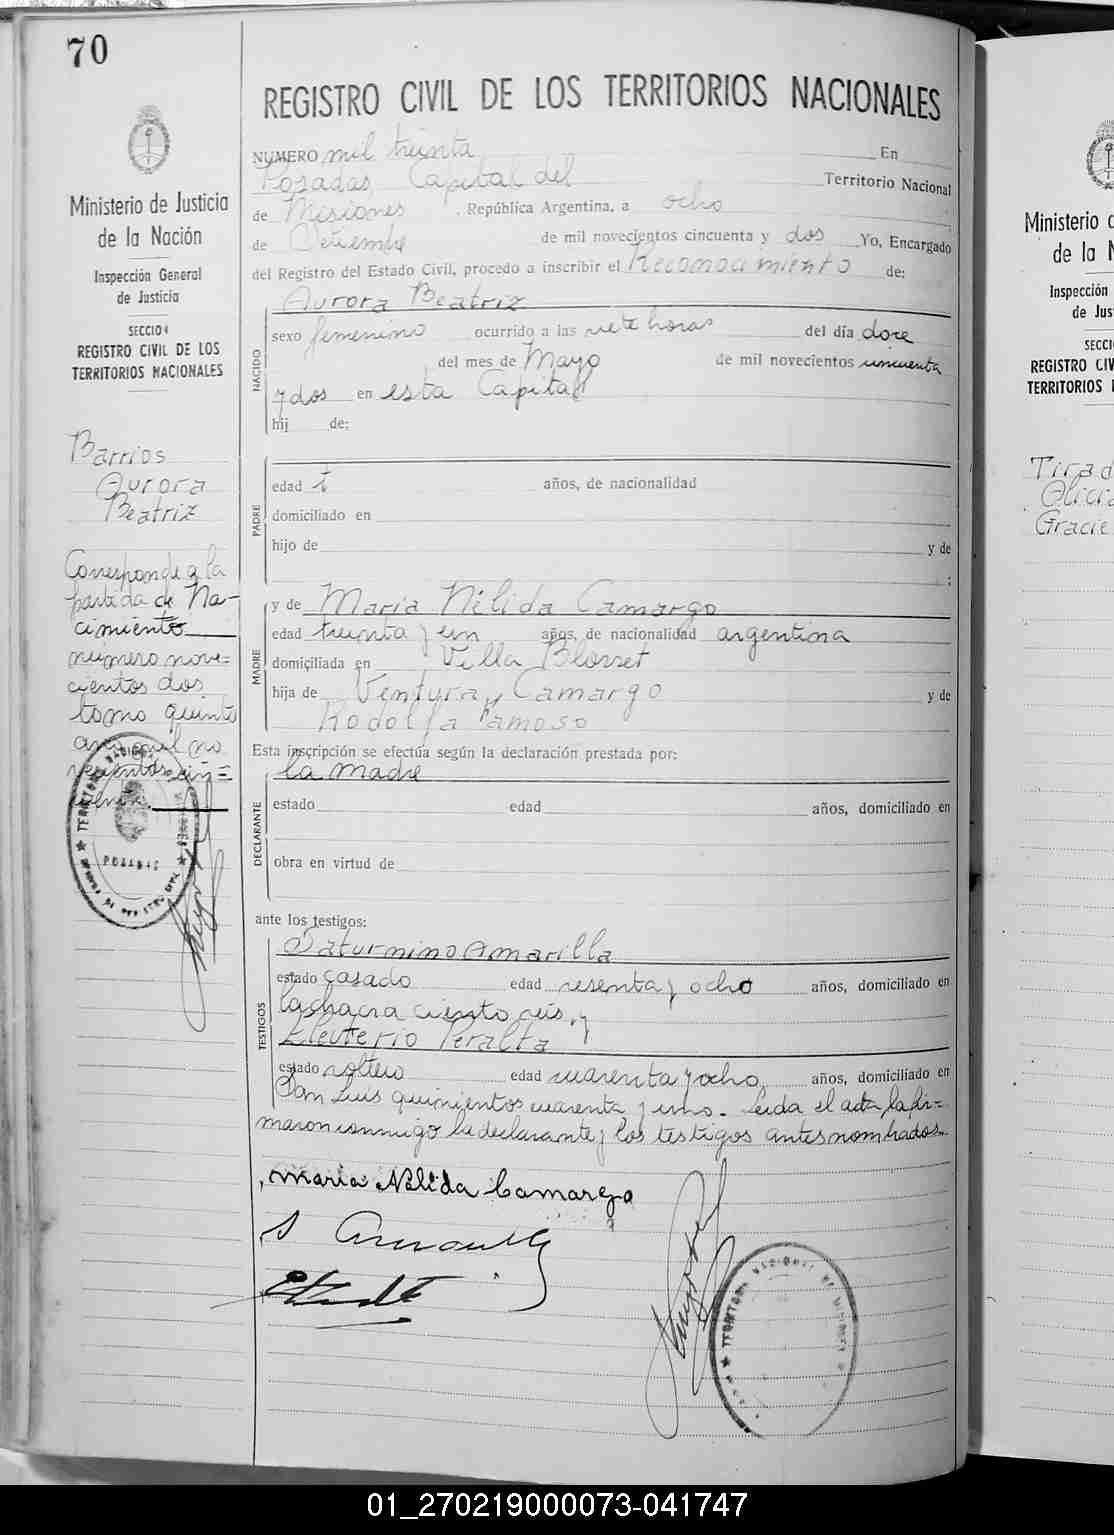 70
REGISTRO CIVIL DE LOS TERRITORIOS NACIONALES
Ministerio de Justicia
de la Nación
Inspección General
de Justicia
SECCION
REGISTRO CIVIL DE LOS
TERRITORIOS NACIONALES
Barrios
Aurora
Beatriz
Corresponde a la
partida de Na-
cimiento
número nove=
cientos dos
tomo quinto
NUMERO mil treinta En
Posadas Capital del Territorio Nacional
de Misiones, República Argentina, a ocho
de Setiembre de mil novecientos cincuenta y dos Yo, Encargado
del Registro del Estado Civil, procedo a inscribir el Reconocimiento de:
NACIDO
Aurora Beatriz
sexo femenino ocurrido a las siete horas del día doce
del mes de Mayo de mil novecientos cincuenta
y dos en esta Capital
hij de:
PADRE
edad años, de nacionalidad
domiciliado en
hijo de y de
;
MADRE
y de Maria Nélida Camargo
edad treinta y un años, de nacionalidad argentina
domiciliada en Villa Blosset
hija de Ventura Camargo y de
Rodolfa Ramoso
Esta inscripción se efectúa según la declaración prestada por:
DECLARANTE
la madre
estado edad años, domiciliado en
obra en virtud de
ante los testigos:
TESTIGOS
Saturnino Amarilla
estado casado edad sesenta y ocho años, domiciliado en
la chacra ciento seis, y
Eleuterio Peralta
estado soltero edad cuarenta y ocho años, domiciliado en
San Luis quinientos cuarenta y uno. Leida el acta la fir=
maron conmigo la declarante y los testigos antes nombrados.
Maria Nélida Camargo
TERRITORIO NACIONAL DE MISIONES
POSADAS
TERRITORIO NACIONAL DE MISIONES
Ministerio d
de la N
Inspección
de Jus
SECCI
REGISTRO CIV
TERRITORIOS
Tirad
Alicia
Gracie
01_270219000073-041747